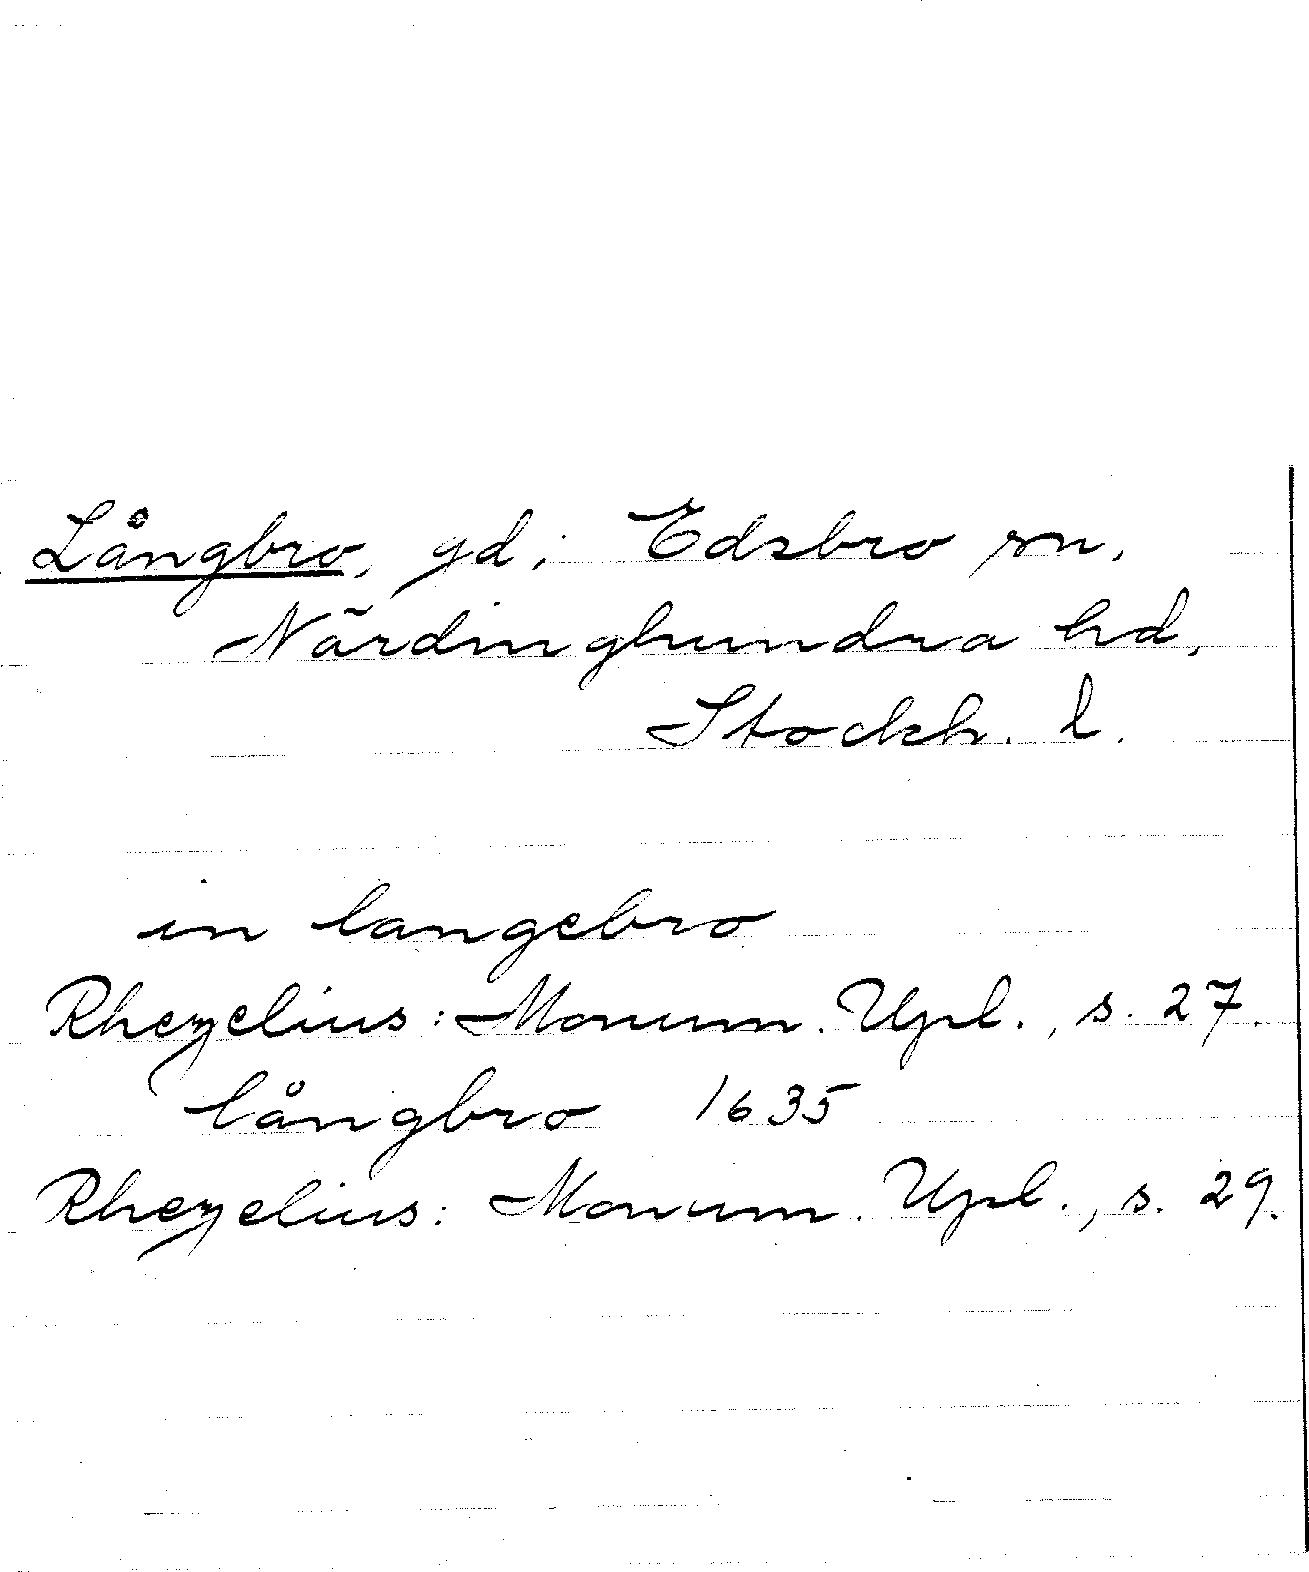 Långbro, gd, Edsbro sn,
Närdinghundra hd,
Stockh. l.
in langebro
Rhezelius: Monum. Upl., s. 27.
långbro 1635
Rhezelius: Monum. Upl., s. 29.